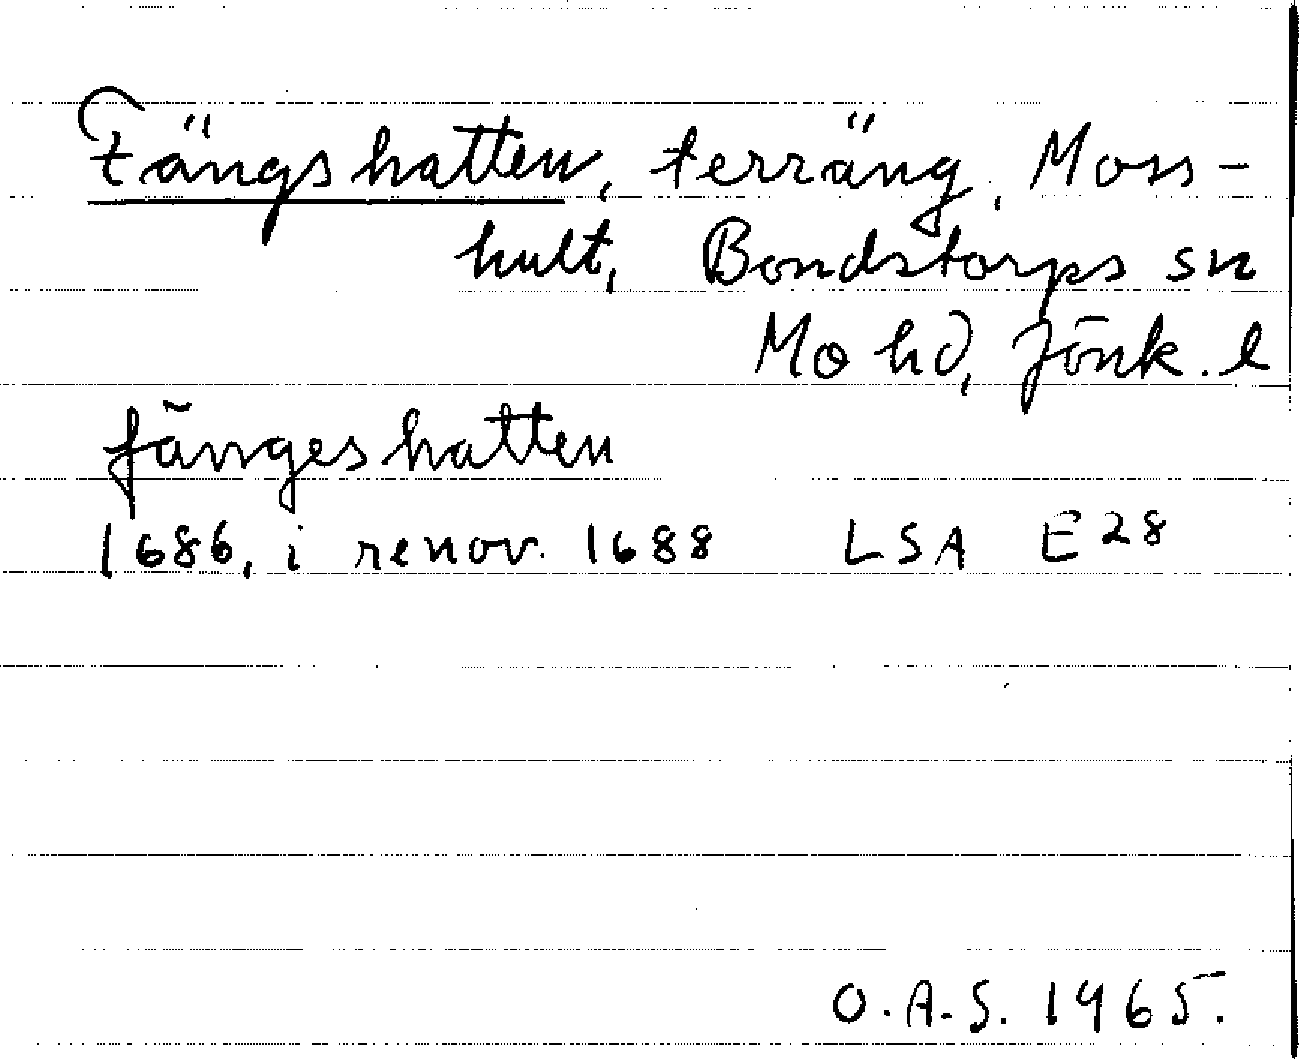 Fängshatten, terräng, Moss-
hult, Bondstorps sn
Mo hd, Jönk. l
fängeshatten
1686, i renov. 1688 LSA E28
O.A.S. 1965.